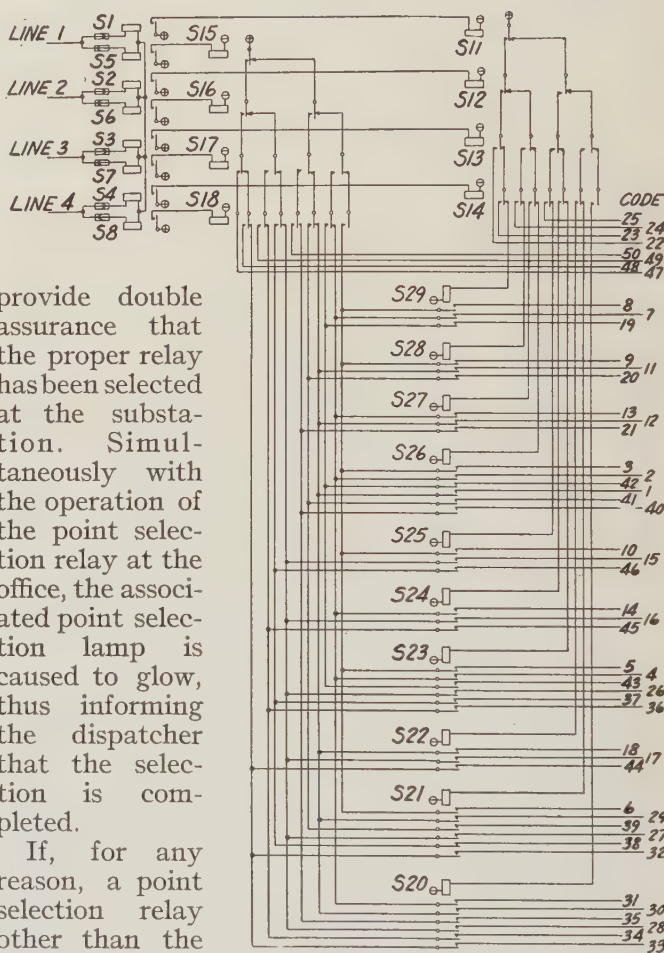 LINE 1
S1
S5
S15
S11
LINE 2
S2
S6
S16
S12
LINE 3
S3
S7
S17
S13
LINE 4
S4
S8
S18
S14
CODE
25
24
23
22
50
49
48
47
S29
8
7
19
S28
9
11
20
S27
13
12
21
S26
3
2
42
1
41
40
S25
10
15
46
S24
14
16
45
S23
5
4
43
26
37
36
S22
18
17
44
S21
6
29
39
27
38
32
S20
31
30
35
28
34
33
provide double
assurance that
the proper relay
has been selected
at the substa-
tion. Simul-
taneously with
the operation of
the point selec-
tion relay at the
office, the associ-
ated point selec-
tion lamp is
caused to glow,
thus informing
the dispatcher
that the selec-
tion is com-
pleted.
If, for any
reason, a point
selection relay
other than the